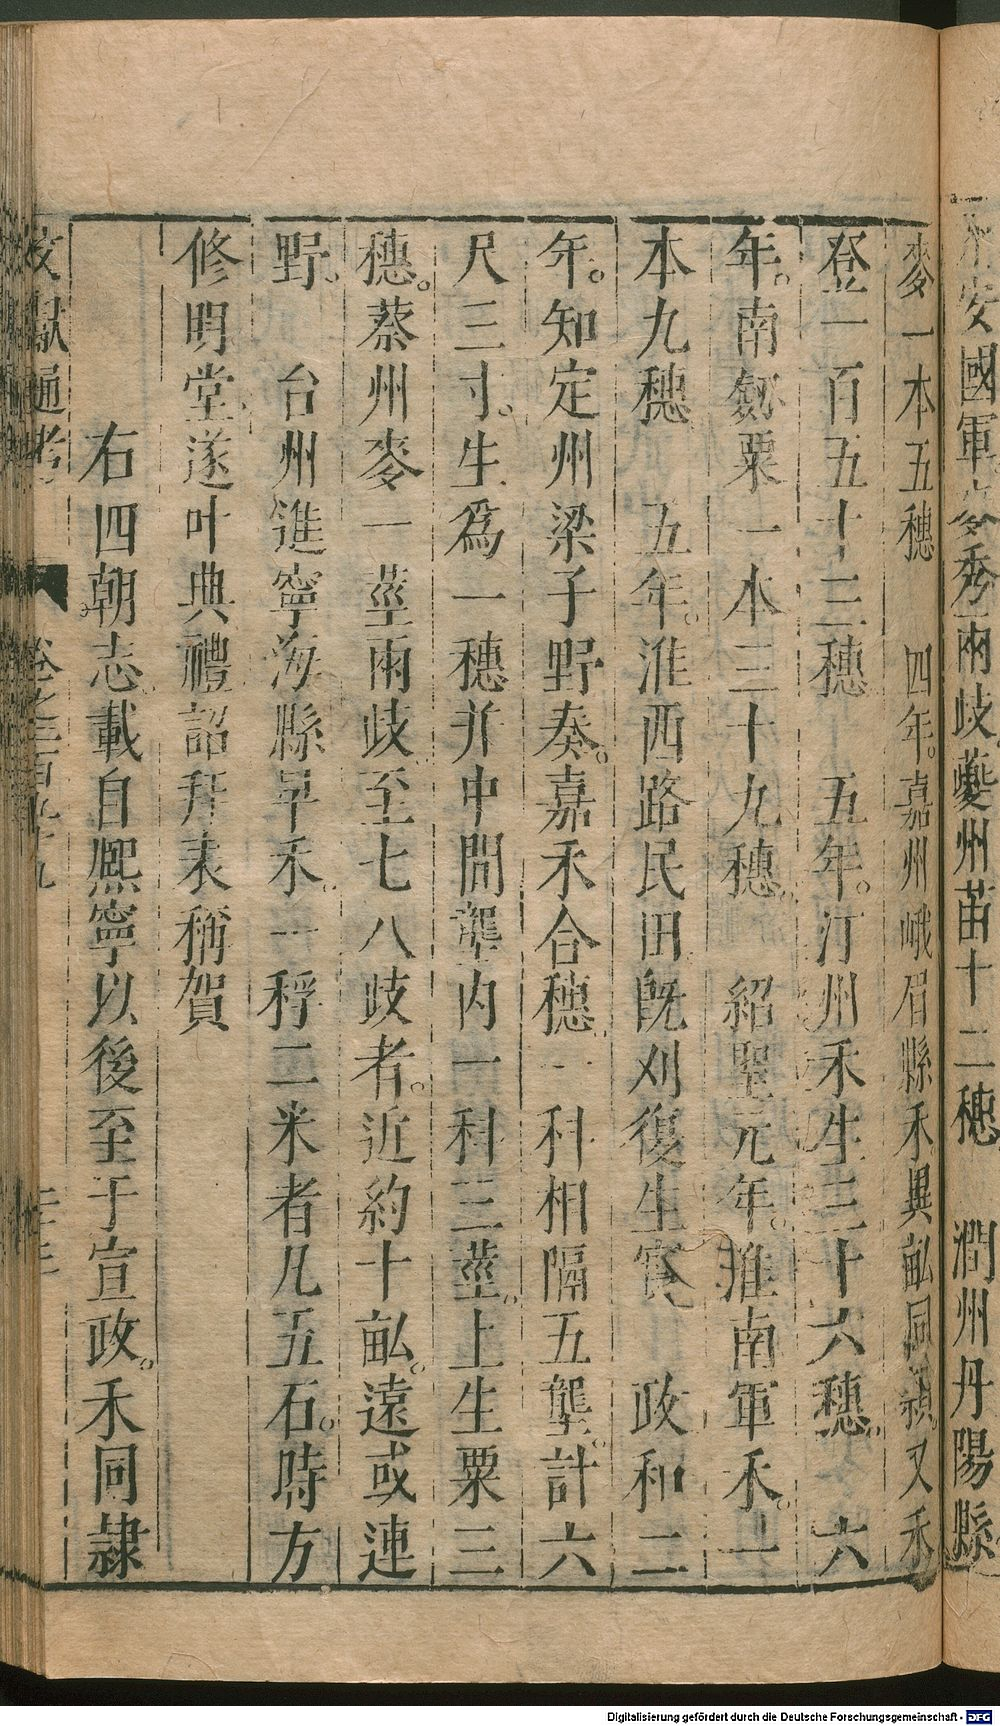 安國軍麥秀兩岐夔州苗十二穗　潤州丹陽縣
麥一本五穗　四年。嘉州峨眉縣禾異畝同穎。又禾
登一百五十三穗　五年。汀州禾生三十六穗。　六
年。南劔粟一本三十九穗　紹聖元年。淮南軍禾。一
本九穗　五年。淮西路民田旣刈復生實　政和二
年。知定州梁子野奏。嘉禾合穗一科相隔五壟。計六
尺三寸。生爲一穗并中間壟内一科三莖。上生粟三
穗。蔡州麥一莖兩歧至七八歧者。近約十畝。遠或連
野。　台州進寧海縣早禾。一稃二米者凡五石。時方
修明堂。遂叶典禮。詔拜表稱賀
右四朝志。載自熙寧以後至于宣政。禾同隷
文獻通考　卷之二百九十九　二十二
Digitalisierung gefördert durch die Deutsche Forschungsgemeinschaft - DFG